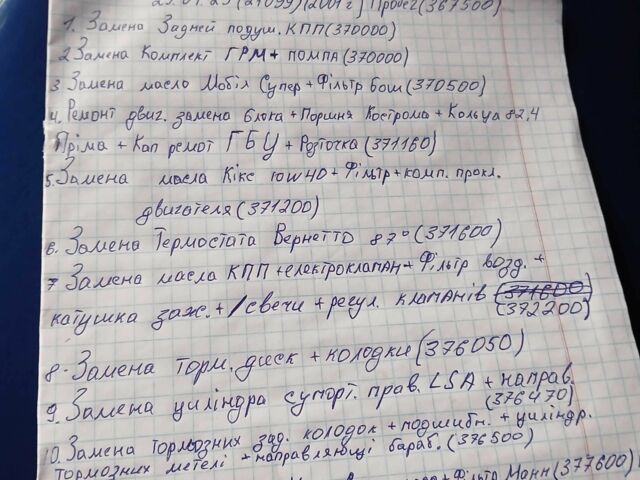 (21099)(2001г) Пробег(367500)
1. Замена Задней подуш. КПП(370000)
2 Замена Комплект ГРМ + ПОМПА (370000)
3 Замена масло Мобіл Супер + Фільтр бош(370500)
4. Ремонт двиг. замена блока + Поршня Кострома + Кольца 82,4
Пріма + Кап ремот ГБЦ + Розточка (371160)
5. Замена масла Кікс 10w40 + Фільтр + комп. прокл.
двигателя (371200)
6. Замена Термостата Вернетто 87° (371600)
7 Замена масла КПП + електроклапан + Фільтр возд. +
катушка заж. + свечи + регул. клапанів (371600)
(372200)
8. Замена торм. диск + колодки (376050)
9. Замена циліндра супорт. прав. LSA + направ.
(376470)
10. Замена тормозних зад. колодок + подшибн. + циліндр.
тормозних метелі + направляющі бараб. (376500)
+ Фільтр Манн (377600)